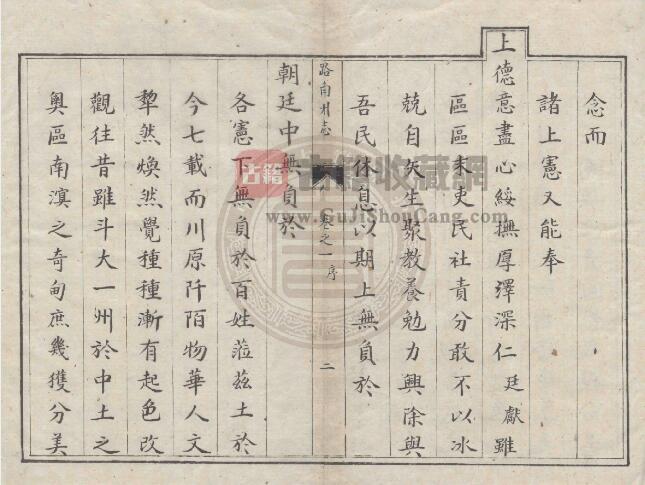 念而
諸上憲又能奉
上德意盡心綏撫厚澤深仁廷獻雖
區區末吏民社責分敢不以冰
兢自矢生聚教養勉力興除與
吾民休息以期上無負於
路南州志 卷之一序 二
朝廷中無負於
各憲下無負於百姓蒞茲土於
今七載而川原阡陌物華人文
犂然煥然覺種種漸有起色改
觀往昔雖斗大一州於中土之
奧區南滇之奇甸庶幾獲分美
古籍收藏网
www.GuJiShouCang.com
古籍